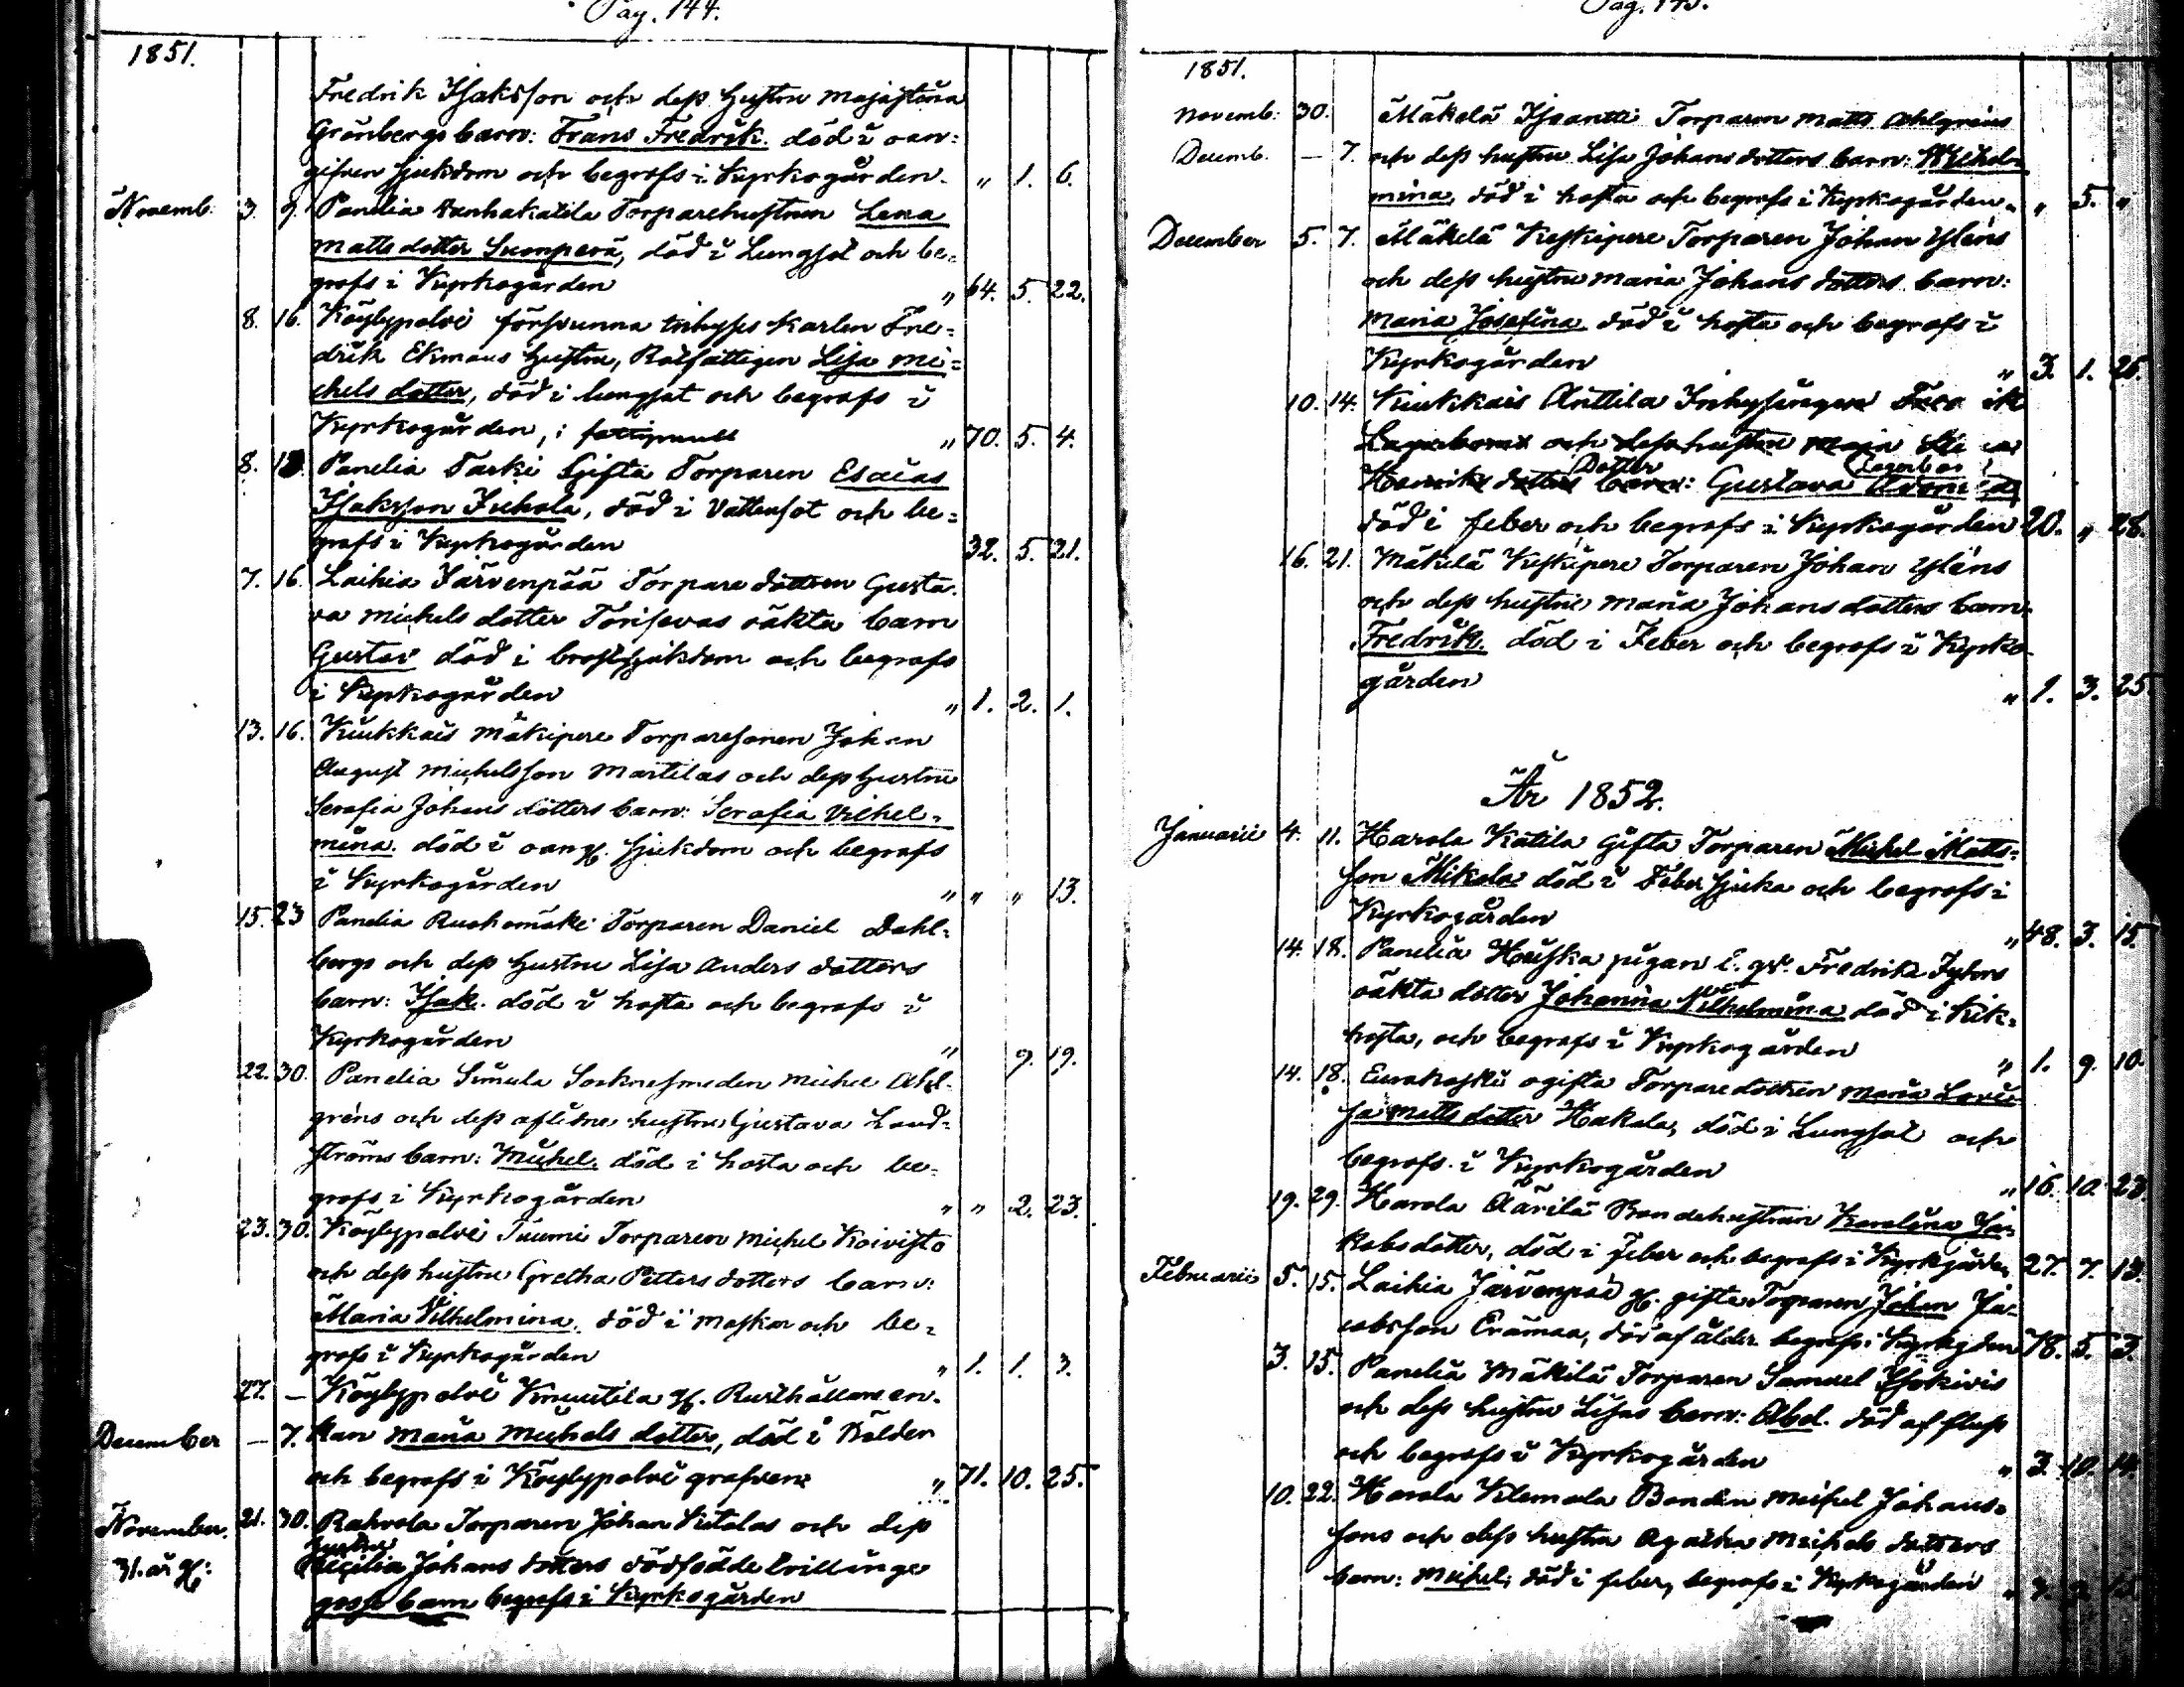 Pag. 144.
1851.
Fredrik Isaksson och dess Hustru Majastina
Grönbergs barn: Frans Fredrik. död i oan-
gifven sjukdom och begrofs i Kyrkogården. " 1. 6.
Novemb. 3. 9. Panelia Vanhakatila Torparehustrun Lena
Matts dotter Sumperä, död i Lungsot och be-
grofs i Kyrkogården " 64. 5. 22.
8. 16. Köyligpolvi försvunna inhyses Karlen Fre-
drik Ekmans Hustru, Rotfattigen Lisa Mi-
chels dotter, död i lungsot och begrofs i
Kyrkogården, i " 70. 5. 4.
8. Panelia Tarki Gifta Torparen Esaias
Isaksson Juhola, död i Vattusot och be-
grofs i Kyrkogården 32. 5. 21.
7. 16. Laihia Järvenpää Torpare dottren Gusta-
va Michels dotter Torisevas oäkta barn
Gustav död i bröstsjukdom och begrofs
i Kyrkogården " 1. 2. 1.
13. 16. Kiukkais Mäkipere Torparesonen Johan
August Michelsson Martilas och dess Hustru
Serafia Johans dotters barn: Serafia Vilhel-
mina. död i oangf. sjukdom och begrofs
i Kyrkogården " " " 13.
15. 23 Panelia Ruohomäki Torparen Daniel Dahl-
bergs och dess Hustru Lisa Anders dotters
barn: Isak. död i hosta och begrofs i
Kyrkogården " 9. 19.
22. 30. Panelia Simula Socknesmeden Michel Ahl-
gréns och dess aflidne hustru Gustava Land-
ströms barn: Michel. död i hosta och be-
grofs i Kyrkogården " " 2. 23.
23. 30. Köyligpolvi Tuumi Torparen Michel Koivisto
och dess hustru Gretha Petters dotters barn:
Maria Vilhelmina. död i maskar och be-
grofs i Kyrkogården " 1. 1. 3.
27. — Köyligpolvi Knuutila gf. Rusthållaren-
December — 7. kan Maria Michels dotter, död i Ålder
och begrofs i Köyligpolvi grafven " 71. 10. 25.
November. 21. 30. Rahvola Torparen Johan Sitolas och dess
hustru
31. år gf: Cecilia Johans dotters dödfödde tvillinge
gosse barn begrofs i Kyrkogården
Pag. 145.
1851.
Novemb. 30. Mäkelä Isoantti Torparen Matts Ahlgréns
Decemb. — 7. och dess hustru Lisa Johans dotters barn: Wilhel-
mina, död i hosta och begrofs i Kyrkogården " " 5. "
December 5. 7. Mäkelä Keskipere Torparen Johan Yléns
och dess hustru Maria Johans dotters barn:
Maria Josefina död i hosta och begrofs i
Kyrkogården " 3. 1. 25.
10. 14. Kiukkais Anttila Inhysingen
Lagerboms och dess hustru Maja
Dotter
Henriks dotters barn: Gustava
död i feber och begrofs i Kyrkogården 20. " 28.
16. 21. Mäkelä Keskipere Torparen Johan Yléns
och dess hustru Maria Johans dotters barn:
Fredrik. död i Feber och begrofs i Kyrko-
gården " 1. 3. 25
År 1852.
Januarii 4. 11. Harola Katila Gifta Torparen Michel Matts-
son Mikola död i Feber sjuka och begrofs i
Kyrkogården " 48. 3. 15.
14. 18. Panelia Heiska pigan Fredrika
oäkta dotter Johanna Vilhelmina död i Kik-
hosta, och begrofs i Kyrkogården " 1. 9. 10.
14. 18. Eurakoski ogifta Torpare dottren Maria Lovi-
sa Matts dotter Hakala, död i Lungsot och
begrofs i Kyrkogården " 16. 10. 23.
19. 29. Harola Äärilä Bondehustrun Karolina Ja-
kobs dotter, död i feber och begrofs i Kyrkgården 27. 7. 13.
Februarii 5. 15. Laihia Järvenpää gf. gifta Torparen Johan Ja-
cobsson Erämaa, död af ålder begrofs i Kyrkgden 78. 5. 3.
3. 15. Panelia Mäkilä Torparen Samuel Isokivis
och dess hustru Lisas barn: Abel. död af fluss
och begrofs i Kyrkogården " 3. 10. 14.
10. 22. Harola Klemola Bonden Michel Johans-
sons och dess hustru Agatha Michels dotters
barn: Michel, död i feber, begrofs i Kyrkogården "